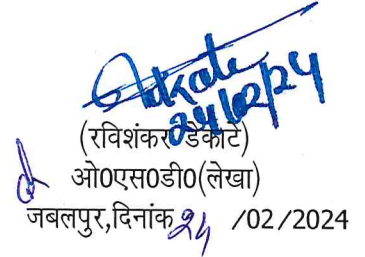 24/02/24
(रविशंकर डेकाटे)
ओ0एस0डी0(लेखा)
जबलपुर,दिनांक 24 /02/2024